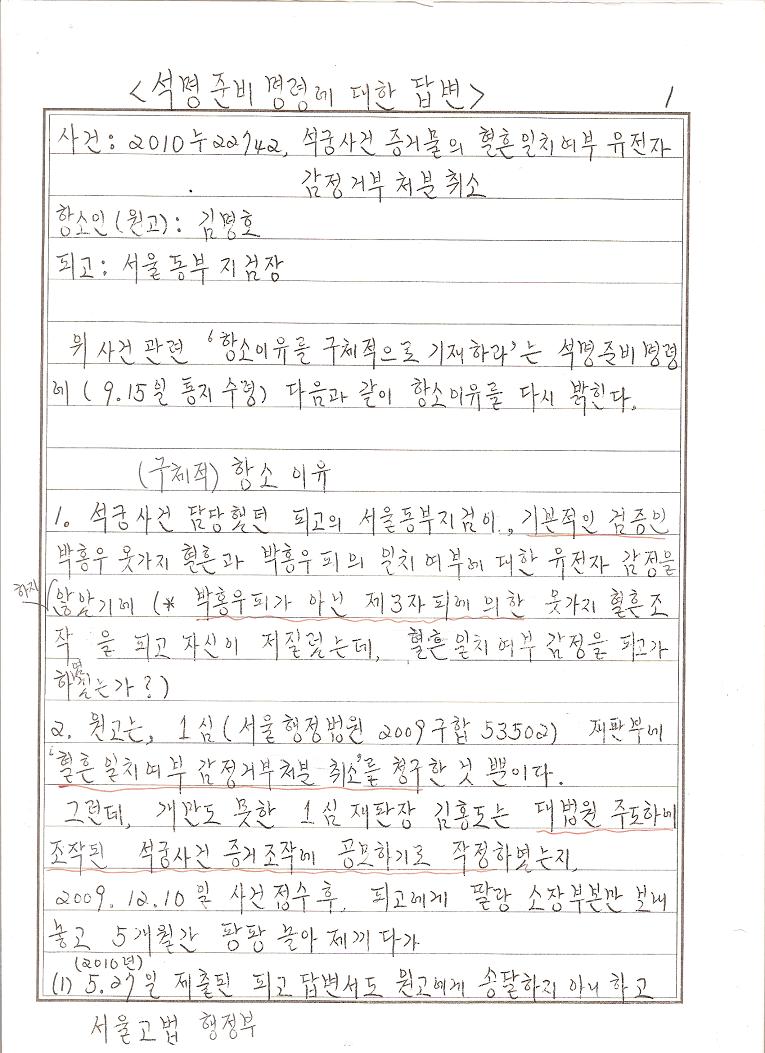 <석명준비명령에 대한 답변>
1
사건: 2010누22742, 석궁사건 증거물의 혈흔일치여부 유전자
감정거부처분취소
항소인(원고): 김명호
피고: 서울동부지검장
위 사건 관련 '항소이유를 구체적으로 기재하라'는 석명준비명령
에 (9.15일 통지 수령) 다음과 같이 항소이유를 다시 밝힌다.
(구체적) 항소 이유
1. 석궁사건 담당했던 피고의 서울동부지검이, 기본적인 검증인
박홍우 옷가지 혈흔과 박홍우 피의 일치여부에 대한 유전자 감정을
하지
않았기에 (* 박홍우피가 아닌 제3자피에 의한 옷가지 혈흔조
작 을 피고 자신이 저질렀는데, 혈흔일치여부 감정을 피고가
하겠는가?)
2. 원고는, 1심(서울행정법원 2009구합 53502) 재판부에
'혈흔일치여부 감정거부처분 취소'를 청구한 것 뿐이다.
그런데, 개만도 못한 1심 재판장 김홍도는 대법원 주도하에
조작된 석궁사건 증거조작에 공모하기로 작정하였는지,
2009.12.10일 사건접수 후, 피고에게 딸랑 소장부본만 보내
놓고 5개월간 팡팡 놀아 제끼다가
(2010년)
(1) 5.27일 제출된 피고 답변서도 원고에게 송달하지 아니 하고
서울고법 행정부